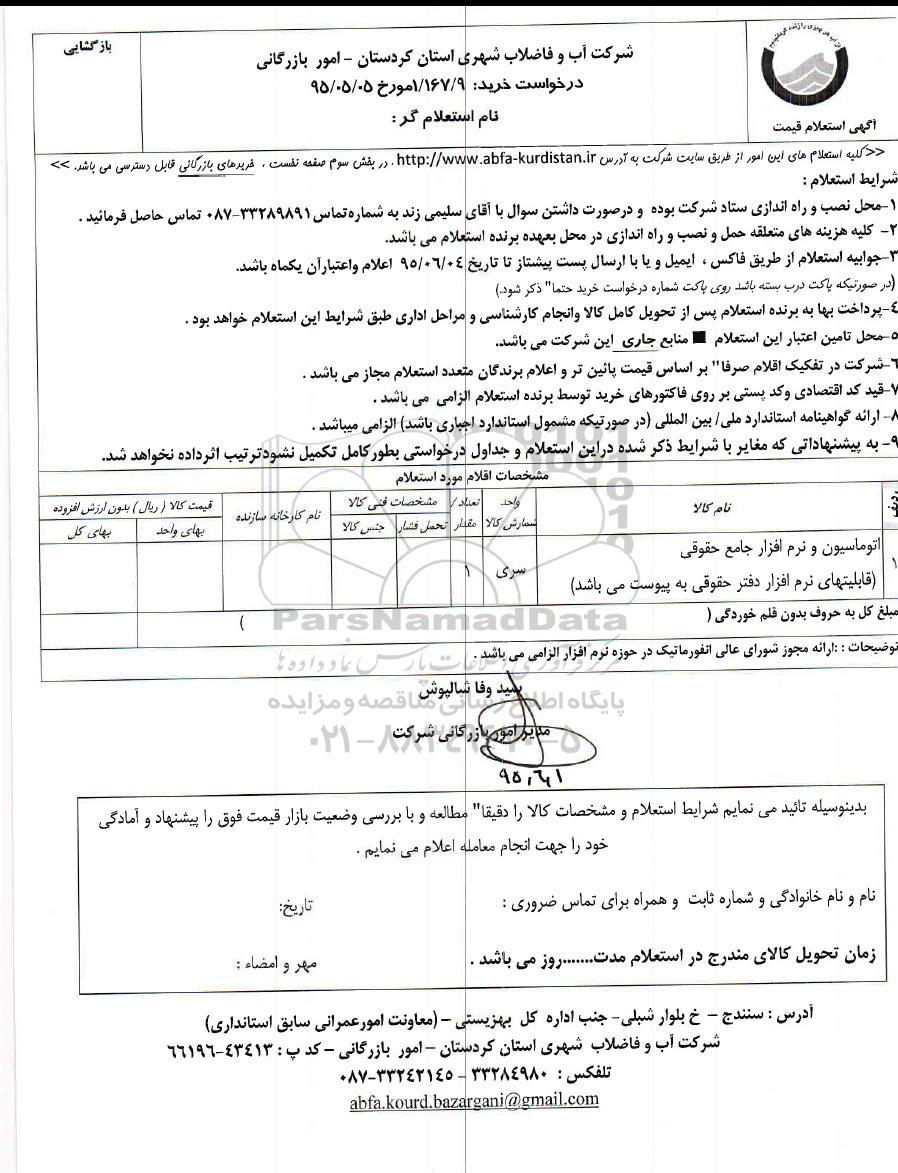 بازگشایی
شرکت آب و فاضلاب شهری استان کردستان – امور بازرگانی
درخواست خرید: ۱/۱۶۷/۹مورخ ۹۵/۰۵/۰۵
نام استعلام گر :
آگهی استعلام قیمت
<<کلیه استعلام های این امور از طریق سایت شرکت به آدرس http://www.abfa-kurdistan.ir ، در بخش سوم صفحه نخست ، خریدهای بازرگانی قابل دسترسی می باشد. >>
شرایط استعلام :
۱-محل نصب و راه اندازی ستاد شرکت بوده و درصورت داشتن سوال با آقای سلیمی زند به شماره‌تماس ۳۳۲۸۹۸۹۱-۰۸۷ تماس حاصل فرمائید .
۲- کلیه هزینه های متعلقه حمل و نصب و راه اندازی در محل بعهده برنده استعلام می باشد.
۳-جوابیه استعلام از طریق فاکس ، ایمیل و یا با ارسال پست پیشتاز تا تاریخ ۹۵/۰۶/۰۴ اعلام واعتبارآن یکماه باشد.
(در صورتیکه پاکت درب بسته باشد روی پاکت شماره درخواست خرید حتما" ذکر شود.)
۴-پرداخت بها به برنده استعلام پس از تحویل کامل کالا وانجام کارشناسی و مراحل اداری طبق شرایط این استعلام خواهد بود .
۵-محل تامین اعتبار این استعلام ■ منابع جاری این شرکت می باشد.
۶-شرکت در تفکیک اقلام صرفا" بر اساس قیمت پائین تر و اعلام برندگان متعدد استعلام مجاز می باشد .
۷-قید کد اقتصادی وکد پستی بر روی فاکتورهای خرید توسط برنده استعلام الزامی می باشد .
۸- ارائه گواهینامه استاندارد ملی/ بین المللی (در صورتیکه مشمول استاندارد اجباری باشد) الزامی میباشد .
۹- به پیشنهاداتی که مغایر با شرایط ذکر شده دراین استعلام و جداول درخواستی بطورکامل تکمیل نشودترتیب اثرداده نخواهد شد.
مشخصات اقلام مورد استعلام
ردیف
نام کالا
واحد شمارش کالا
تعداد/ مقدار
مشخصات فنی کالا
تحمل فشار
جنس کالا
نام کارخانه سازنده
قیمت کالا ( ریال ) بدون ارزش افزوده
بهای واحد
بهای کل
۱
اتوماسیون و نرم افزار جامع حقوقی
(قابلیتهای نرم افزار دفتر حقوقی به پیوست می باشد)
سری
۱
مبلغ کل به حروف بدون قلم خوردگی ( )
ParsNamadData
توضیحات : :ارائه مجوز شورای عالی انفورماتیک در حوزه نرم افزار الزامی می باشد .
سید وفا شالپوش
پایگاه اطلاع رسانی مناقصه و مزایده
مدیر امور بازرگانی شرکت
۰۲۱-۸۸۳۴۹۶۷۰-۵
۹۵/۶/۱
بدینوسیله تائید می نمایم شرایط استعلام و مشخصات کالا را دقیقا" مطالعه و با بررسی وضعیت بازار قیمت فوق را پیشنهاد و آمادگی
خود را جهت انجام معامله اعلام می نمایم .
نام و نام خانوادگی و شماره ثابت و همراه برای تماس ضروری :
تاریخ:
زمان تحویل کالای مندرج در استعلام مدت.......روز می باشد .
مهر و امضاء :
آدرس : سنندج – خ بلوار شبلی- جنب اداره کل بهزیستی – (معاونت امورعمرانی سابق استانداری)
شرکت آب و فاضلاب شهری استان کردستان – امور بازرگانی – کد پ : ۴۳۴۱۳-۶۶۱۹۶
تلفکس : ۳۳۲۸۴۹۸۰ – ۳۳۲۴۲۱۴۵-۰۸۷
abfa.kourd.bazargani@gmail.com